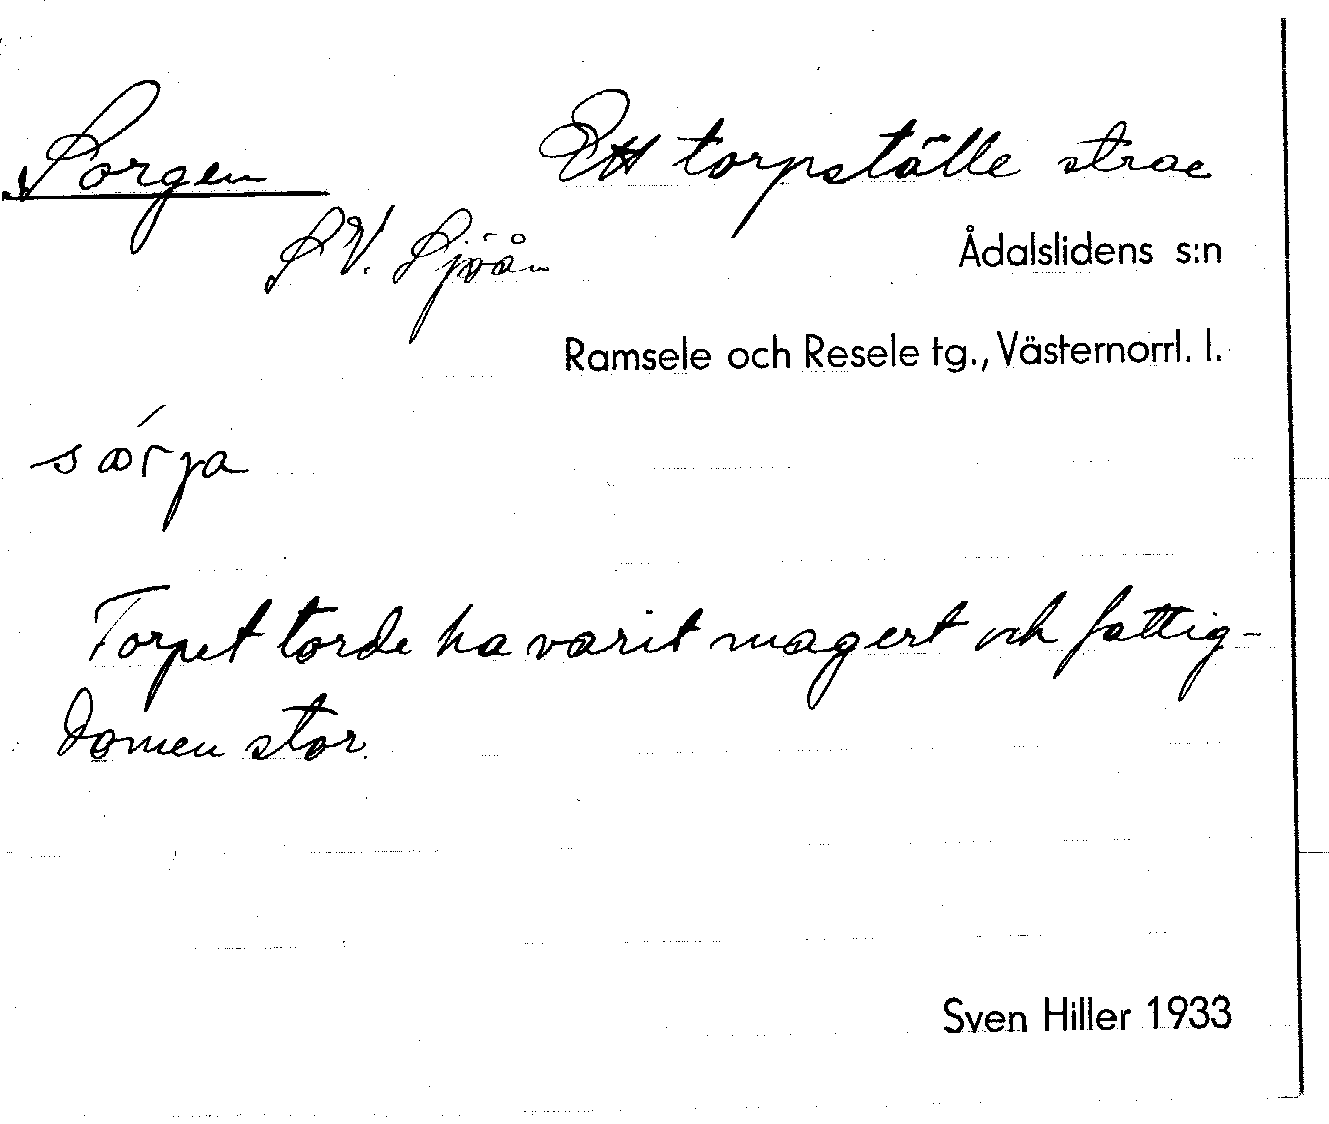 Sorgen Ett torpställe strax
S V. Sjöån
Ådalslidens s:n
Ramsele och Resele tg., Västernorrl. l.
Torpet torde ha varit magert och fattig-
domen stor.
Sven Hiller 1933